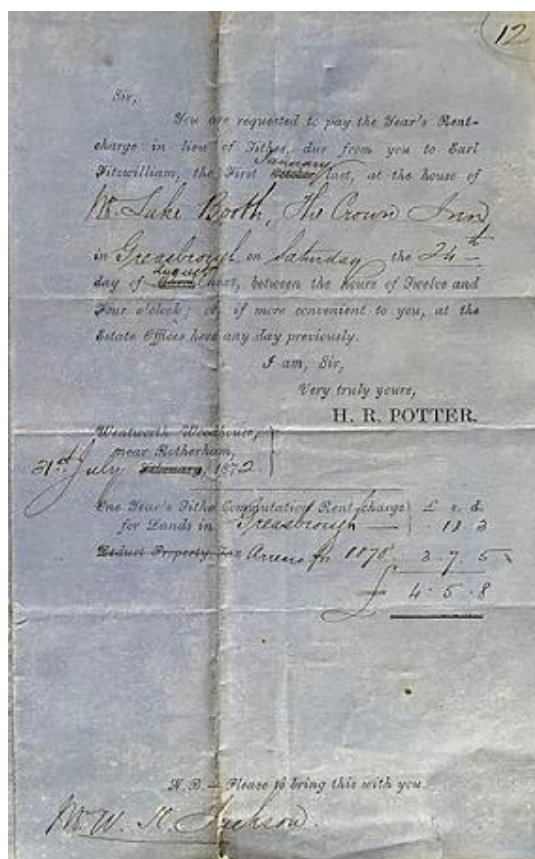 12
Sir,
You are requested to pay the Year's Rent-
charge in lieu of Tithes, due from you to Earl
Fitzwilliam, the First October January last, at the house of
Mr. Luke Booth, The Crown Inn
in Greasbrough on Saturday the 24th
day of August next, between the hours of Twelve and
Four o'clock; or, if more convenient to you, at the
Estate Offices here any day previously.
I am, Sir,
Very truly yours,
H. R. POTTER.
Wentworth Woodhouse,
near Rotherham,
31st July February, 1872.
One Year's Tithe Commutation Rent-charge £ s. d.
for Lands in Greasbrough 18 3
Deduct Property Tax Arrears for 1870 3 . 7 . 5
£ 4 . 5 . 8
N. B.—Please to bring this with you.
Mr. W. H. Jackson.